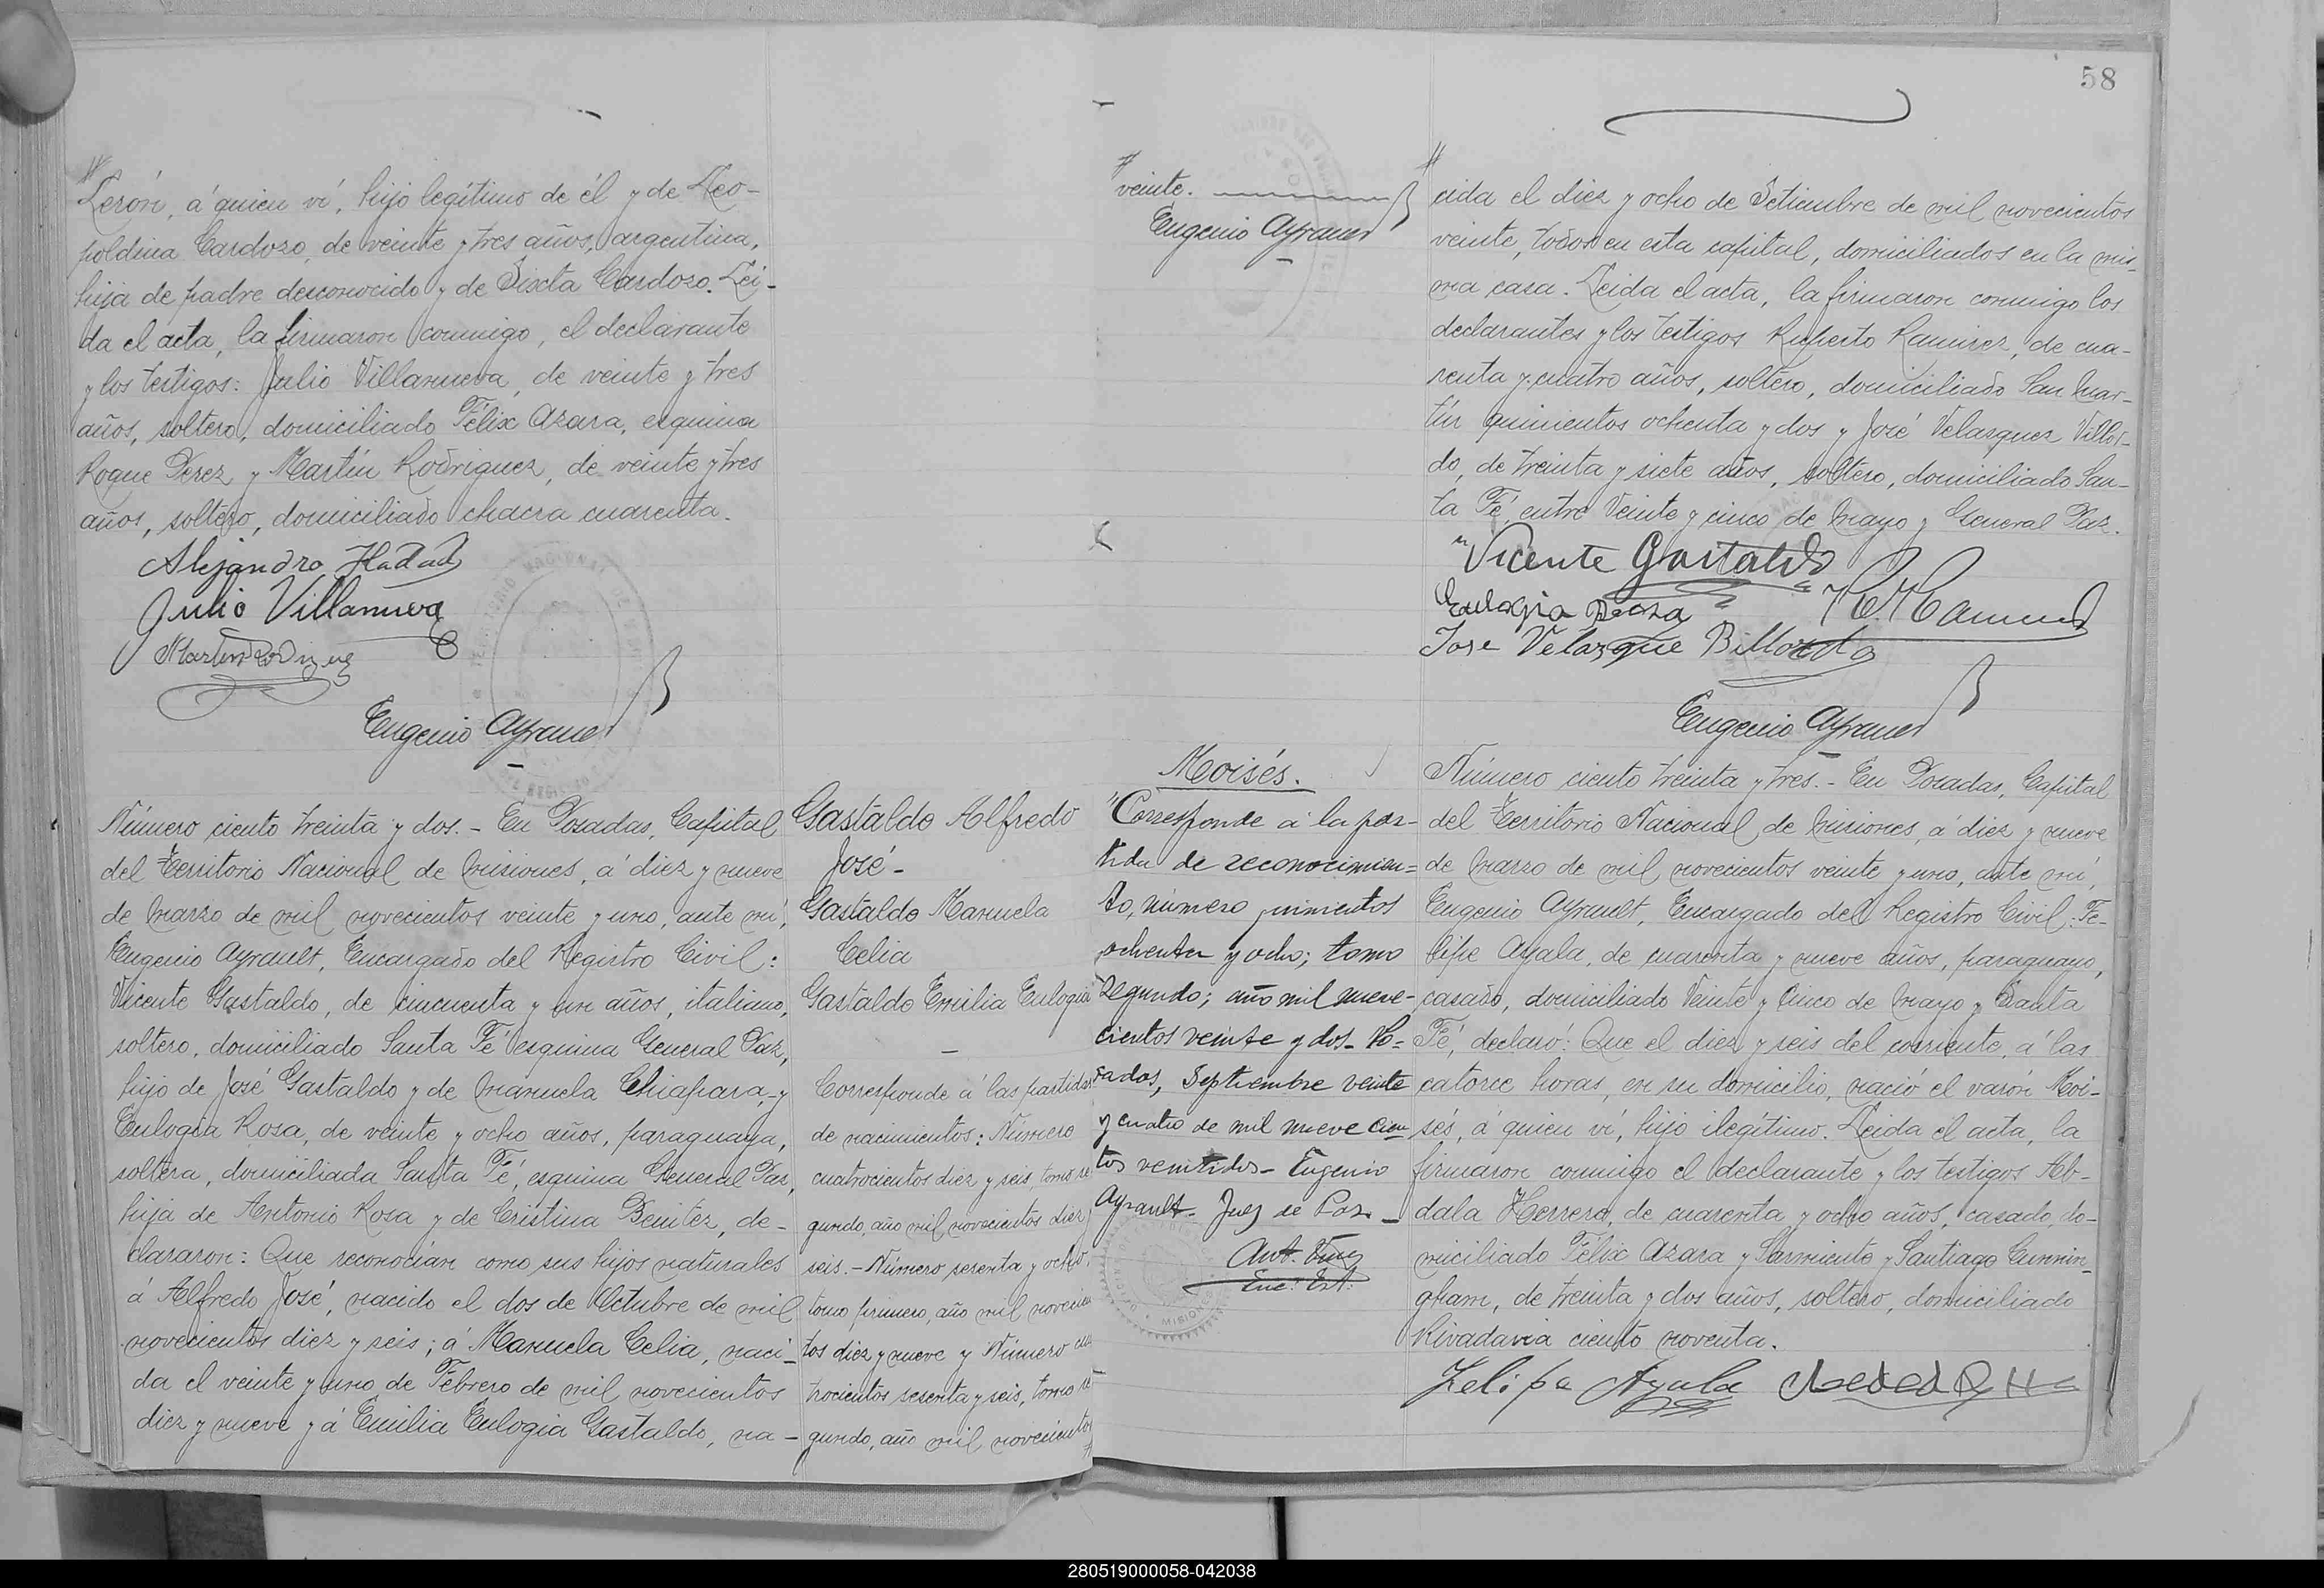 Zerón, á quien ví, hijo legítimo de él y de Leo-
poldina Cardozo, de veinte y tres años, argentina,
hija de padre desconocido y de Sixta Cardozo. Lei-
da el acta, la firmaron conmigo, el declarante
y los testigos: Julio Villanueva, de veinte y tres
años, soltero, domiciliado Félix Azara, esquina
Roque Perez y Martín Rodriguez, de veinte y tres
años, soltero, domiciliado chacra cuarenta.
Alejandro Hadad
Julio Villanueva
Martin Rodriguez
Eugenio Ayrault
Número ciento treinta y dos. - En Posadas, Capital
del Territorio Nacional de Misiones, á diez y nueve
de Marzo de mil novecientos veinte y uno, ante mí,
Eugenio Ayrault, Encargado del Registro Civil:
Vicente Gastaldo, de cincuenta y un años, italiano,
soltero, domiciliado Santa Fé esquina General Paz,
hijo de José Gastaldo y de Manuela Chiapara, y
Eulogia Rosa, de veinte y ocho años, paraguaya,
soltera, domiciliada Santa Fé, esquina General Paz,
hija de Antonio Rosa y de Cristina Benitez, de-
clararon: Que reconocían como sus hijos naturales
á Alfredo José, nacido el dos de Octubre de mil
novecientos diez y seis; á Manuela Celia, naci-
da el veinte y uno de Febrero de mil novecientos
diez y nueve y á Emilia Eulogia Gastaldo, na-
Gastaldo Alfredo
José -
Gastaldo Manuela
Celia
Gastaldo Emilia Eulogia
Corresponde á las partidas
de nacimientos: Número
cuatrocientos diez y seis, tomo se
gundo, año mil novecientos diez y
seis. - Número sesenta y ocho,
tomo primero, año mil novecien
tos diez y nueve y Número cua
trocientos sesenta y seis, tomo se
gundo, año mil novecientos
58
veinte.
Eugenio Ayrault
cida el diez y ocho de Setiembre de mil novecientos
veinte, todos en esta capital, domiciliados en la mis-
ma casa. Leida el acta, la firmaron conmigo los
declarantes y los testigos Ruperto Ramirez, de cua-
renta y cuatro años, soltero, domiciliado San Mar-
tín quinientos ochenta y dos y José Velasquez Villor-
do, de treinta y siete años, soltero, domiciliado San-
ta Fé, entre Veinte y cinco de Mayo y General Paz.
Vicente Gastaldo
Eulogia Rosa
Jose Velazque Billordo
Eugenio Ayrault
Moisés.
"Corresponde á la par-
tida de reconocimien-
to, número quinientos
ochenta y ocho; tomo
segundo; año mil nueve-
cientos veinte y dos - Po-
sadas, Septiembre veinte
y cuatro de mil nueve cien
tos veintidos - Eugenio
Ayrault - Juez de Paz -
Número ciento treinta y tres. - En Posadas, Capital
del Territorio Nacional de Misiones, á diez y nueve
de Marzo de mil novecientos veinte y uno, ante mí,
Eugenio Ayrault, Encargado del Registro Civil: Fe-
lipe Ayala, de cuarenta y nueve años, paraguayo,
casado, domiciliado Veinte y Cinco de Mayo y Santa
Fé, declaró: Que el diez y seis del corriente, á las
catorce horas, en su domicilio, nació el varón Moi-
sés, á quien ví, hijo ilegítimo. Leida el acta, la
firmaron conmigo el declarante y los testigos Ab-
dala Herrera, de cuarenta y ocho años, casado, do-
miciliado Félix Azara y Sarmiento y Santiago Cunnin-
gham, de treinta y dos años, soltero, domiciliado
Rivadavia ciento noventa.
Felipe Ayala
280519000058-042038